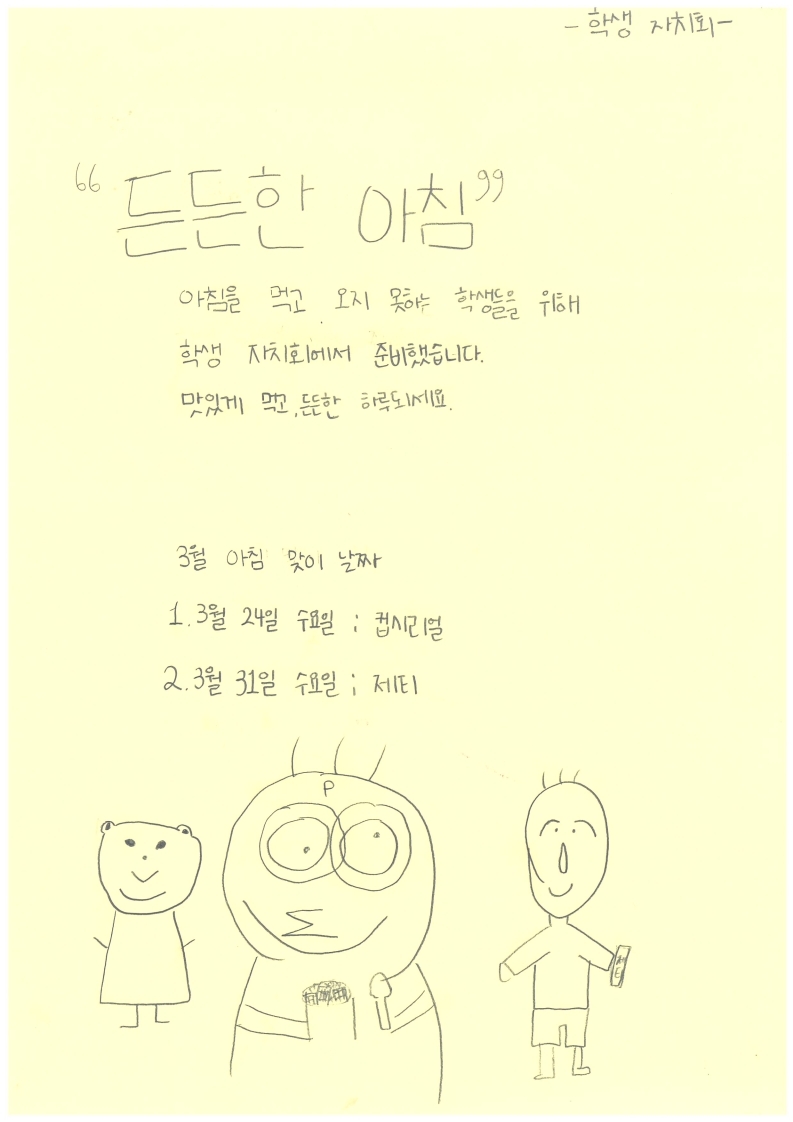 - 학생 자치회 -
“든든한 아침”
아침을 먹고 오지 못하는 학생들을 위해
학생 자치회에서 준비했습니다.
맛있게 먹고, 든든한 하루되세요.
3월 아침 맞이 날짜
1. 3월 24일 수요일 ; 컵시리얼
2. 3월 31일 수요일 ; 제티
P
제티